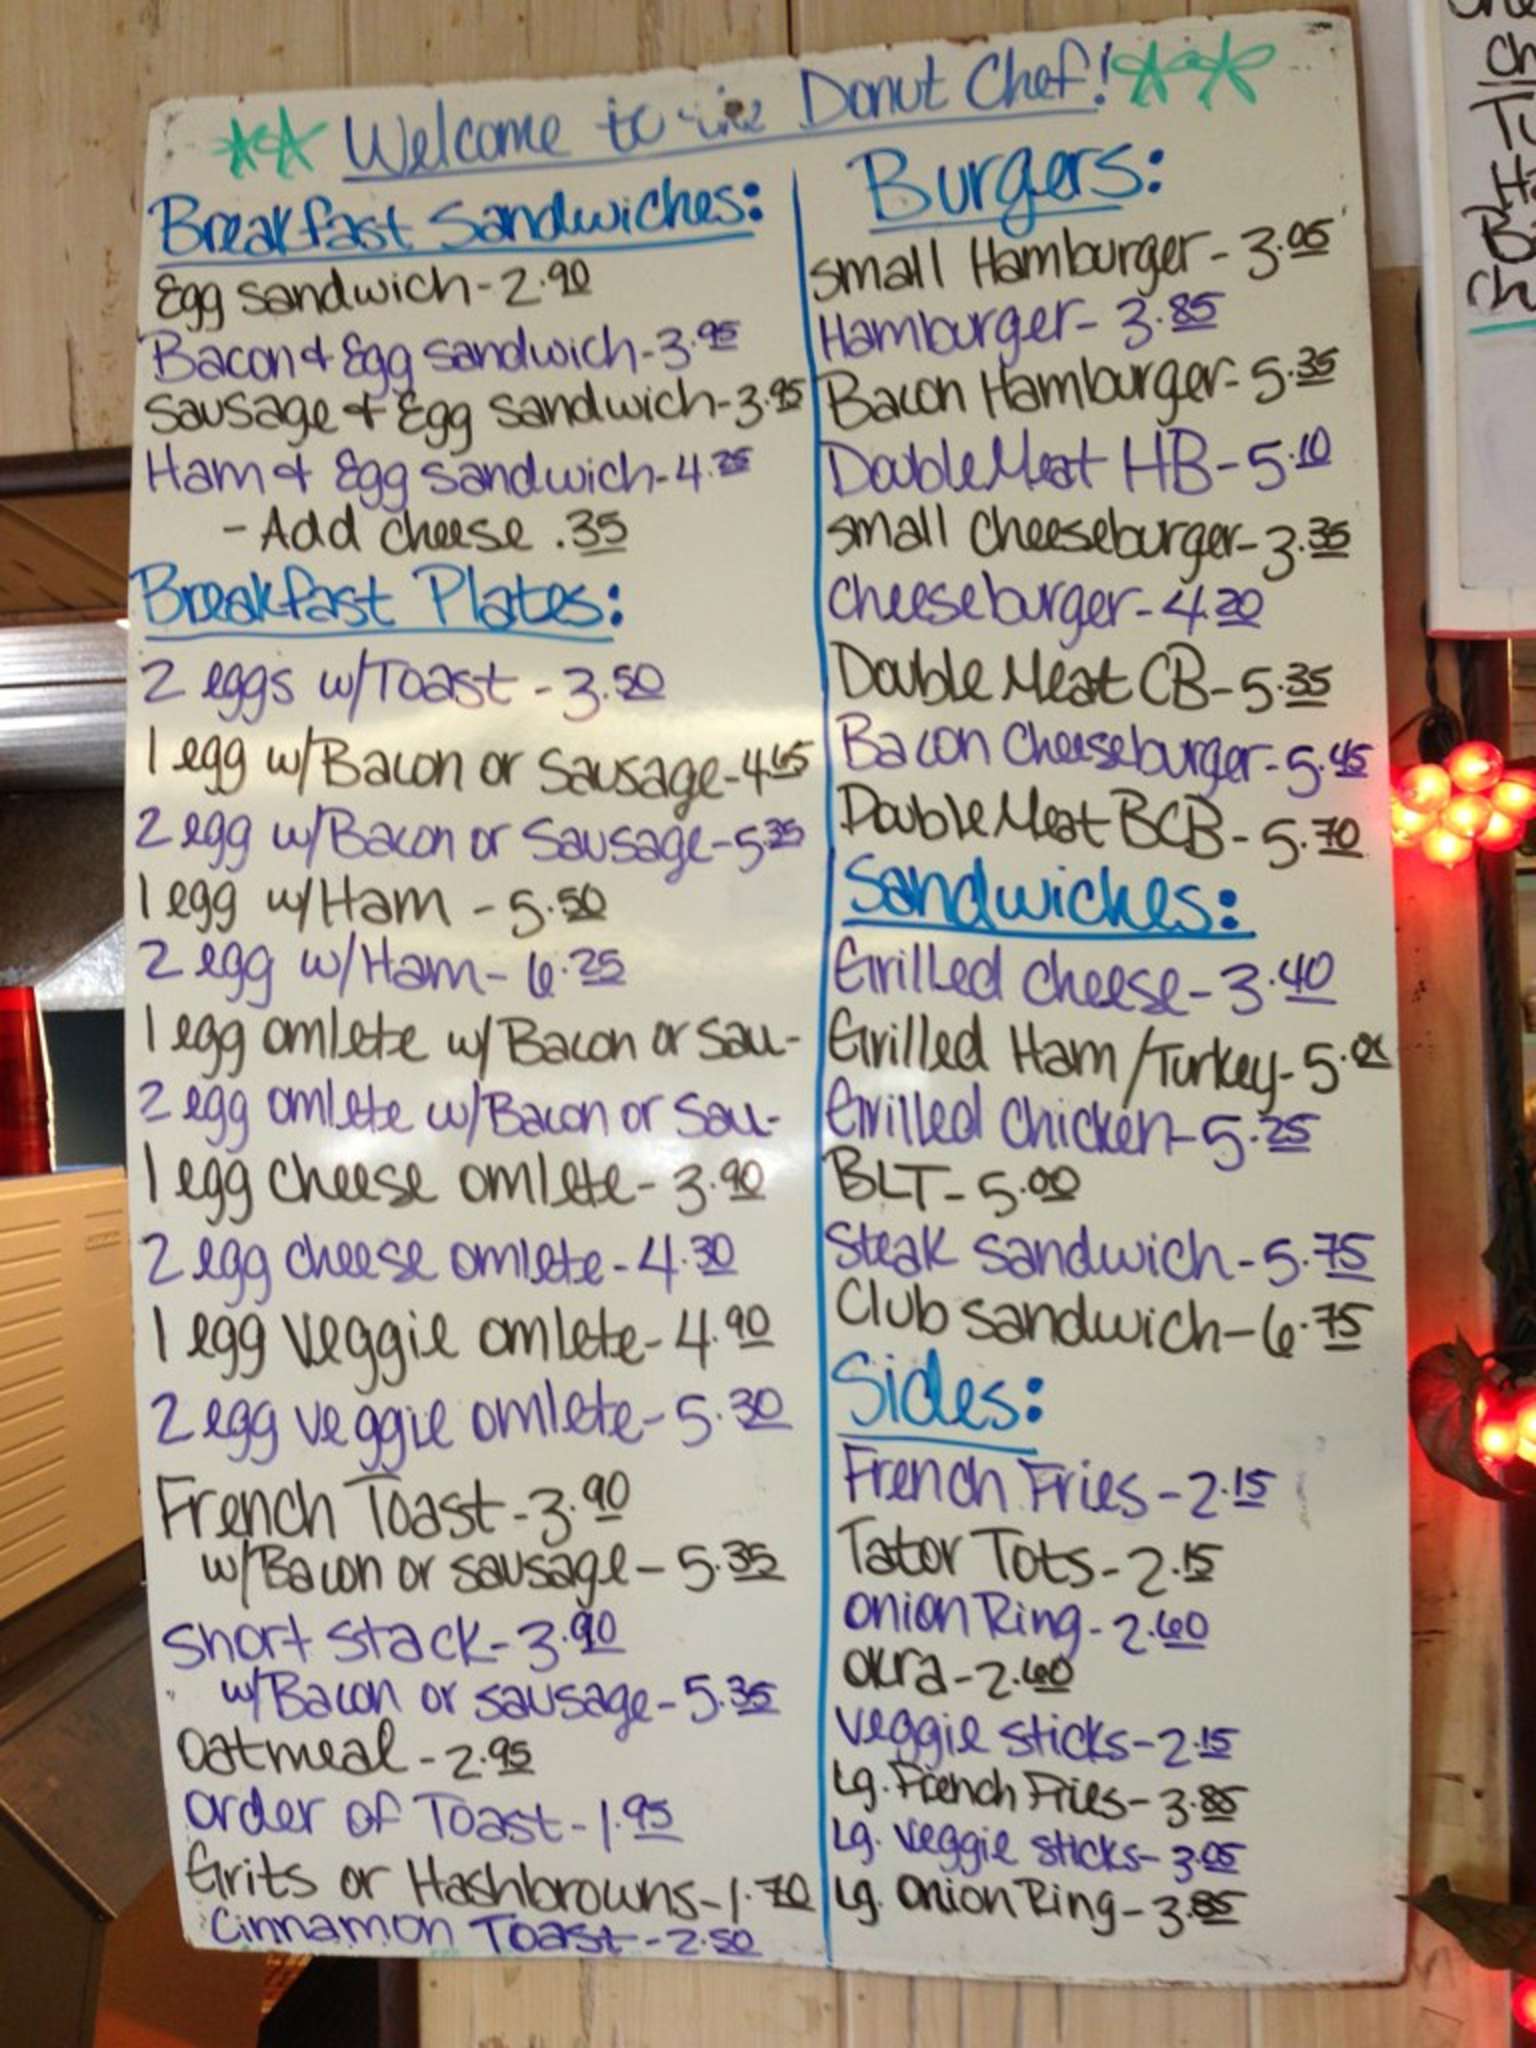 Welcome to the Donut Chef!
Breakfast Sandwiches:
Egg sandwich - 2.90
Bacon & Egg sandwich - 3.95
Sausage & Egg sandwich - 3.95
Ham & Egg sandwich - 4.25
- Add cheese .35
Breakfast Plates:
2 eggs w/Toast - 3.50
1 egg w/Bacon or Sausage - 4.65
2 egg w/Bacon or Sausage - 5.35
1 egg w/Ham - 5.50
2 egg w/Ham - 6.25
1 egg omlete w/Bacon or Sau-
2 egg omlete w/Bacon or Sau-
1 egg cheese omlete - 3.90
2 egg cheese omlete - 4.30
1 egg veggie omlete - 4.90
2 egg veggie omlete - 5.30
French Toast - 3.90
w/Bacon or sausage - 5.35
Short stack - 3.90
w/Bacon or sausage - 5.35
Oatmeal - 2.95
Order of Toast - 1.95
Grits or Hashbrowns - 1.70
Cinnamon Toast - 2.50
Burgers:
Small Hamburger - 3.05
Hamburger - 3.85
Bacon Hamburger - 5.35
Double Meat HB - 5.10
Small Cheeseburger - 3.35
Cheeseburger - 4.20
Double Meat CB - 5.35
Bacon Cheeseburger - 5.45
Double Meat BCB - 5.70
Sandwiches:
Grilled Cheese - 3.40
Grilled Ham/Turkey - 5.
Grilled Chicken - 5.25
BLT - 5.00
Steak Sandwich - 5.75
Club Sandwich - 6.75
Sides:
French Fries - 2.15
Tator Tots - 2.15
Onion Ring - 2.60
Okra - 2.60
Veggie sticks - 2.15
Lg. French Fries - 3.85
Lg. Veggie sticks - 3.05
Lg. Onion Ring - 3.85